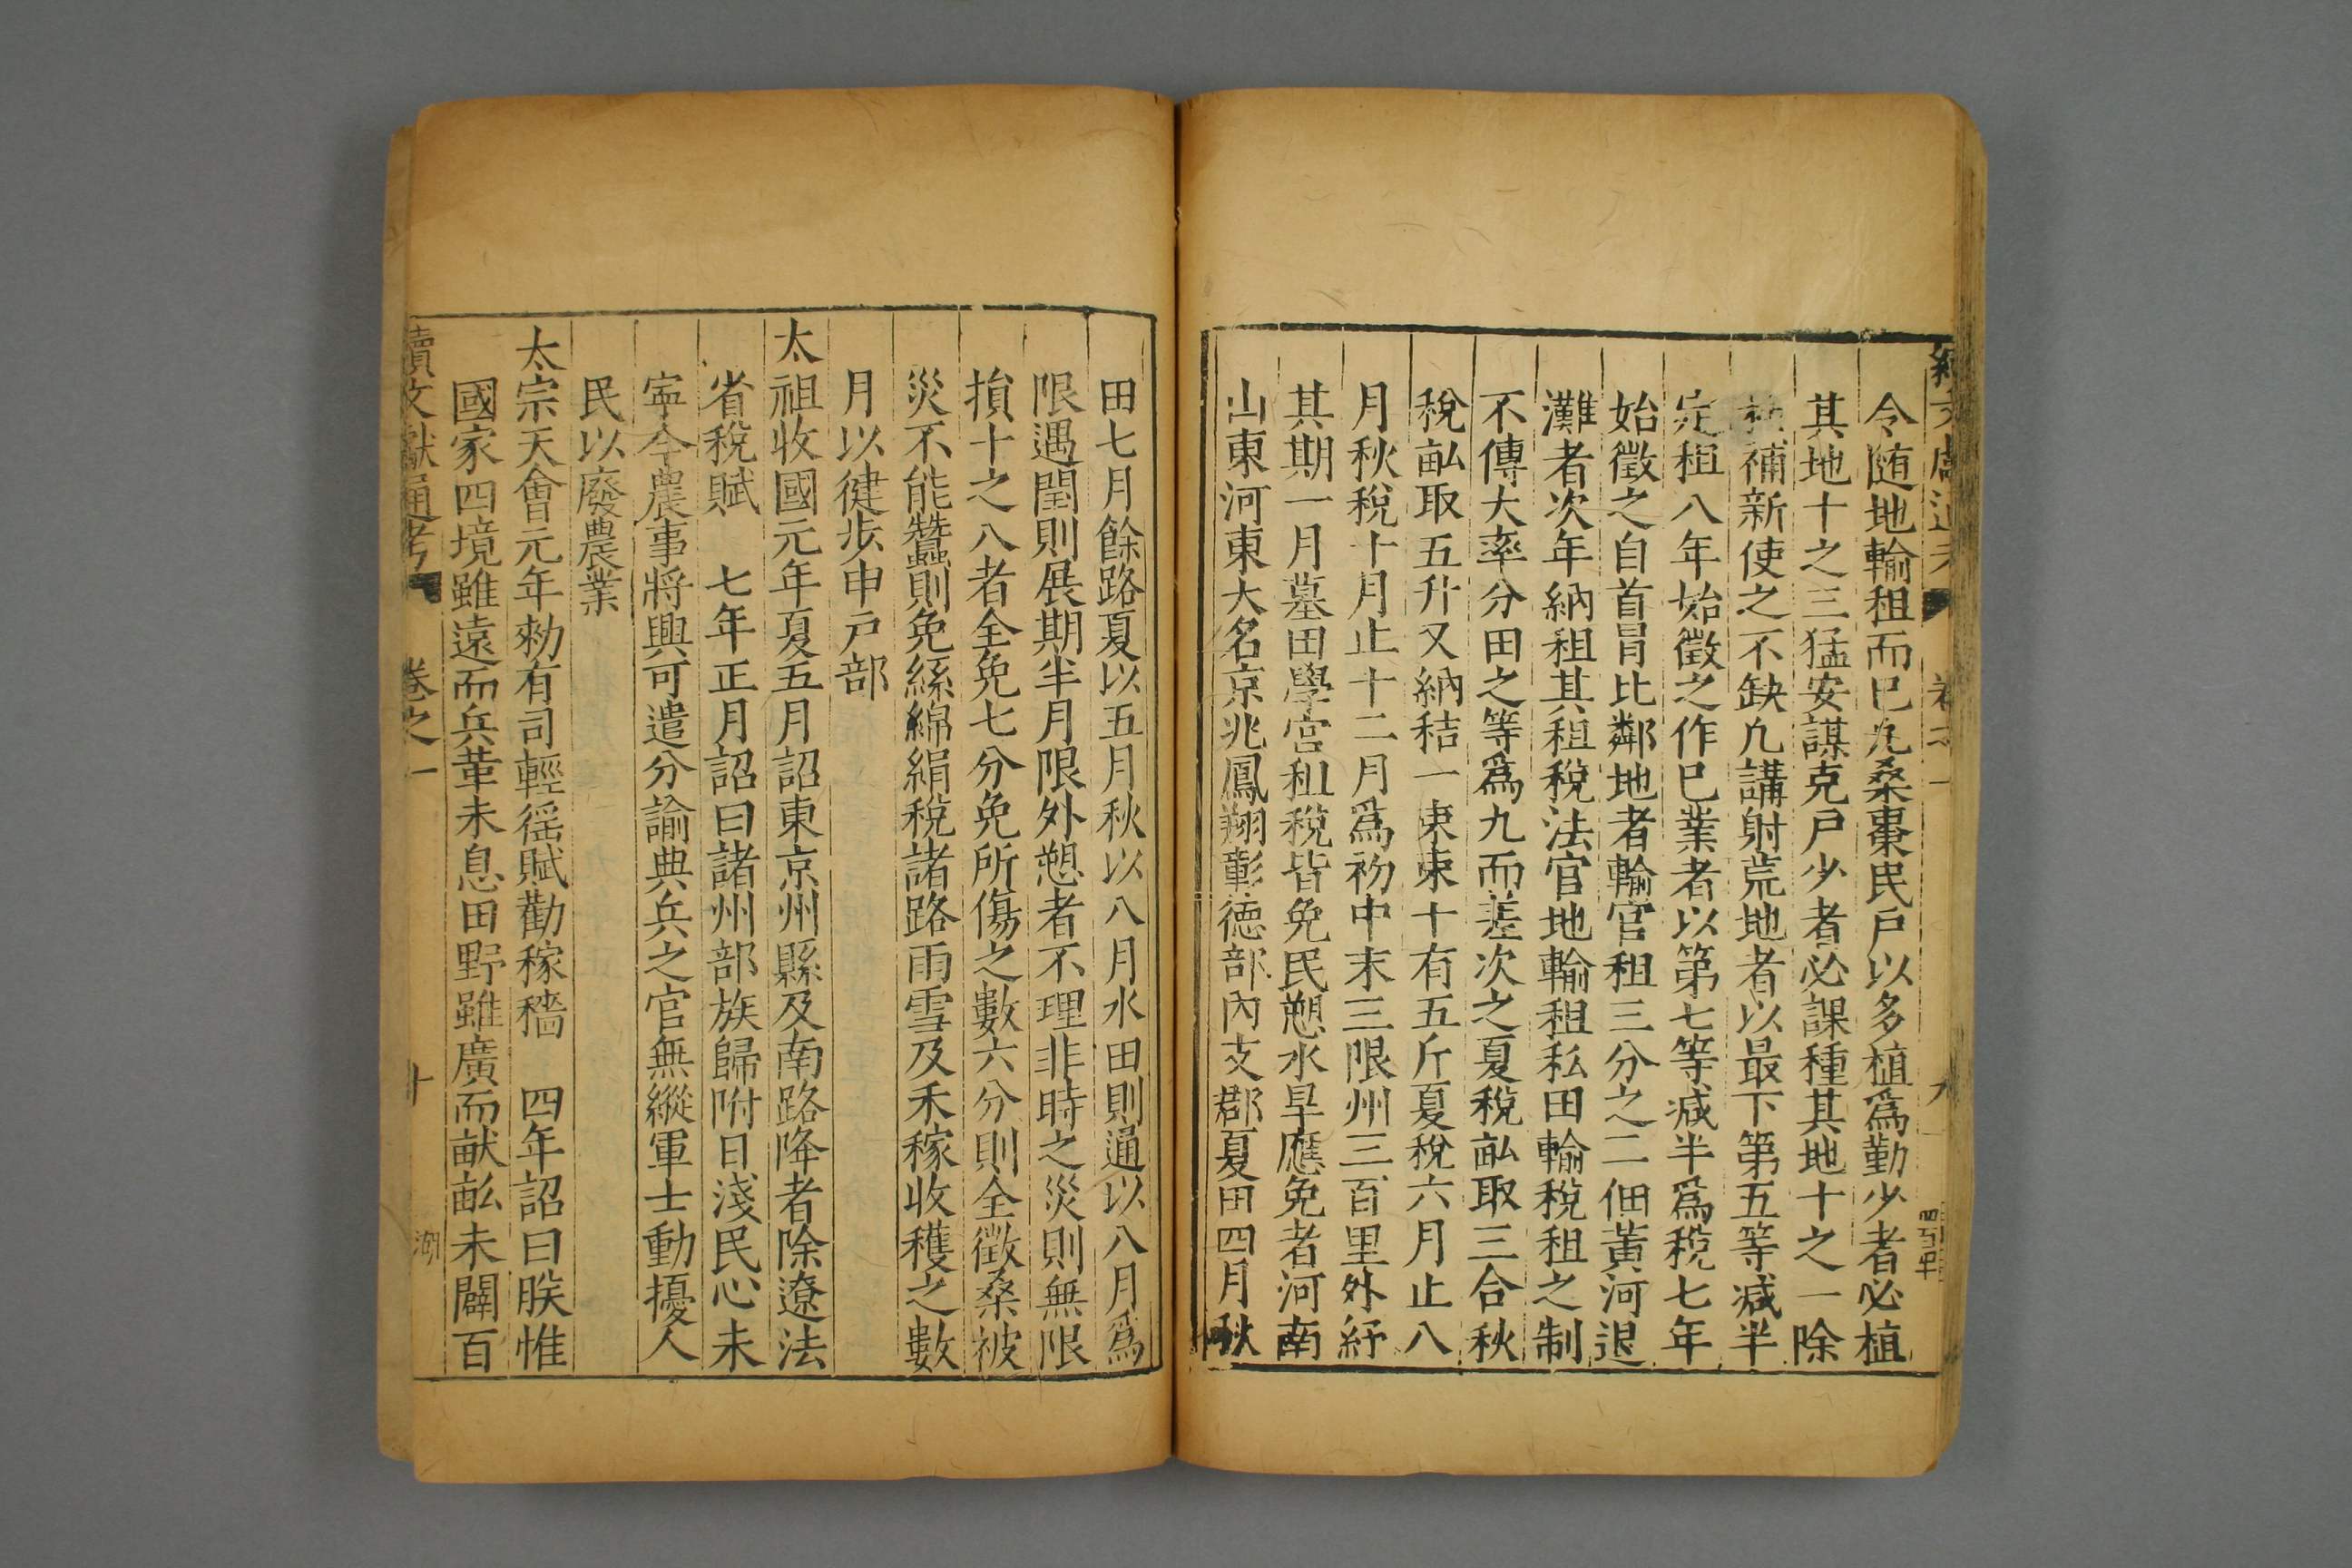 令随地輸租而已凢桑棗民戸以多植爲勤少者必植
其地十之三猛安謀克戸少者必課種其地十之一除
補新使之不缺凢講射荒地者以最下第五等減半
定租八年始徵之作巳業者以第七等減半爲稅七年
始徵之自首冐比鄰地者輸官租三分之二佃黃河退
灘者次年納租其租稅法官地輸租私田輸稅租之制
不傳大率分田之等爲九而差次之夏稅畝取三合秋
稅畝取五升又納秸一束束十有五斤夏稅六月止八
月秋稅十月止十二月爲初中末三限州三百里外紓
其期一月墓田學宮租稅皆免民愬水旱應免者河南
山東河東大名京兆鳳翔彰德部內支郡夏田四月秋
田七月餘路夏以五月秋以八月水田則通以八月爲
限遇閏則展期半月限外愬者不理非時之災則無限
損十之八者全免七分免所傷之數六分則全徵桑被
災不能蠶則免絲綿絹稅諸路雨雪及禾稼收穫之數
月以徤步申戸部
太祖收國元年夏五月詔東京州縣及南路降者除遼法
省稅賦　七年正月詔曰諸州部族歸附日淺民心未
寧今農事將興可遣分諭典兵之官無縱軍士動擾人
民以廢農業
太宗天會元年勑有司輕徭賦勸稼穡　四年詔曰朕惟
國家四境雖遠而兵革未息田野雖廣而畎畝未闢百
續文獻通考　卷之一　十　湖